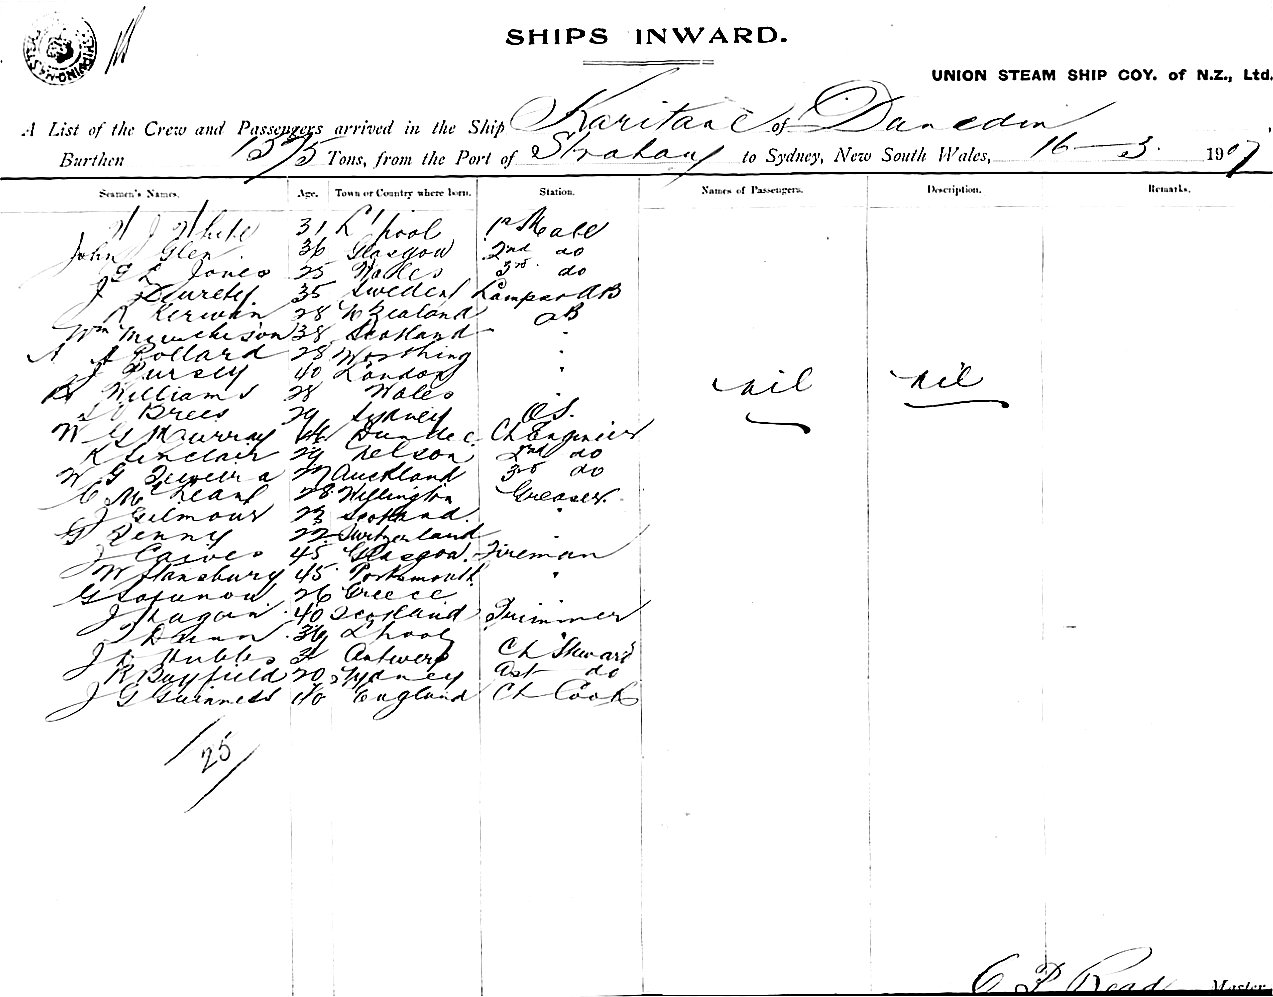 SHIPS INWARD.
UNION STEAM SHIP COY. of N.Z., Ltd.
A List of the Crew and Passengers arrived in the Ship Karitane of Dunedin
Burthen 1375 Tons, from the Port of Strahan to Sydney, New South Wales, 16 - 3. 1907
Seamen's Names. Age. Town or Country where born. Station. Names of Passengers. Description. Remarks.
J White 31 L'pool 1st Mate
John Glen 36 Glasgow 2nd do
G L Jones 25 Wales 3rd do
J 35 Sweden Lamps & AB
R Kerwin 28 N Zealand AB
Wm Murchison 38 Scotland "
A A Pollard 28 Worthing "
J Pursey 40 London "
Williams 28 Wales "
nil nil
Brees 29 Sydney OS.
W G Murray 46 Dundee Ch Engineer
K Sinclair 29 Nelson 2nd do
W G 27 Auckland 3rd do
C McLean 28 Wellington Greaser
J Gilmour 23 Scotland "
G Denny 22 Switzerland "
J 45 Glasgow Fireman
W Hansbury 45 Portsmouth "
G 26 Greece
J Hagan 40 Scotland Trimmer
J Dunn 39 L'pool "
J Hubbes Antwerp Ch Steward
R Bayfield 20 Sydney Ast do
J G Guinness 40 England Ch Cook
25
C P Read Master